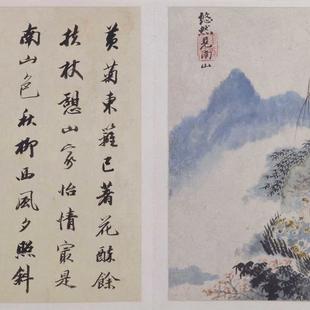 悠然見南山
黃菊東籬已著花醉餘
扶杖憩山家怡情最是
南山色秋柳西風夕照斜